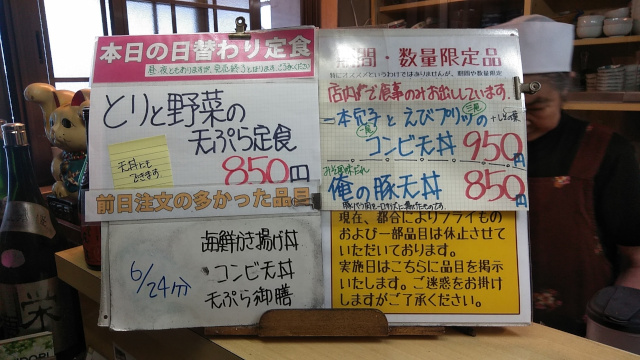 本日の日替わり定食
とりと野菜の
天ぷら定食
天丼にも
できます
850円
前日注文の多かった品目
6/24分
海鮮かき揚げ丼
コンビ天丼
天ぷら御膳
期間・数量限定品
特にオススメというわけではありませんが、期間や数量限定
店内で食事のみお出ししています。
一本穴子とえびプリッツの
コンビ天丼 950円
俺の豚天丼 850円
現在、都合によりフライもの
および一部品目は休止させて
いただいております。
実施日はこちらに品目を掲示
いたします。ご迷惑をお掛け
しますがご了承ください。
栄